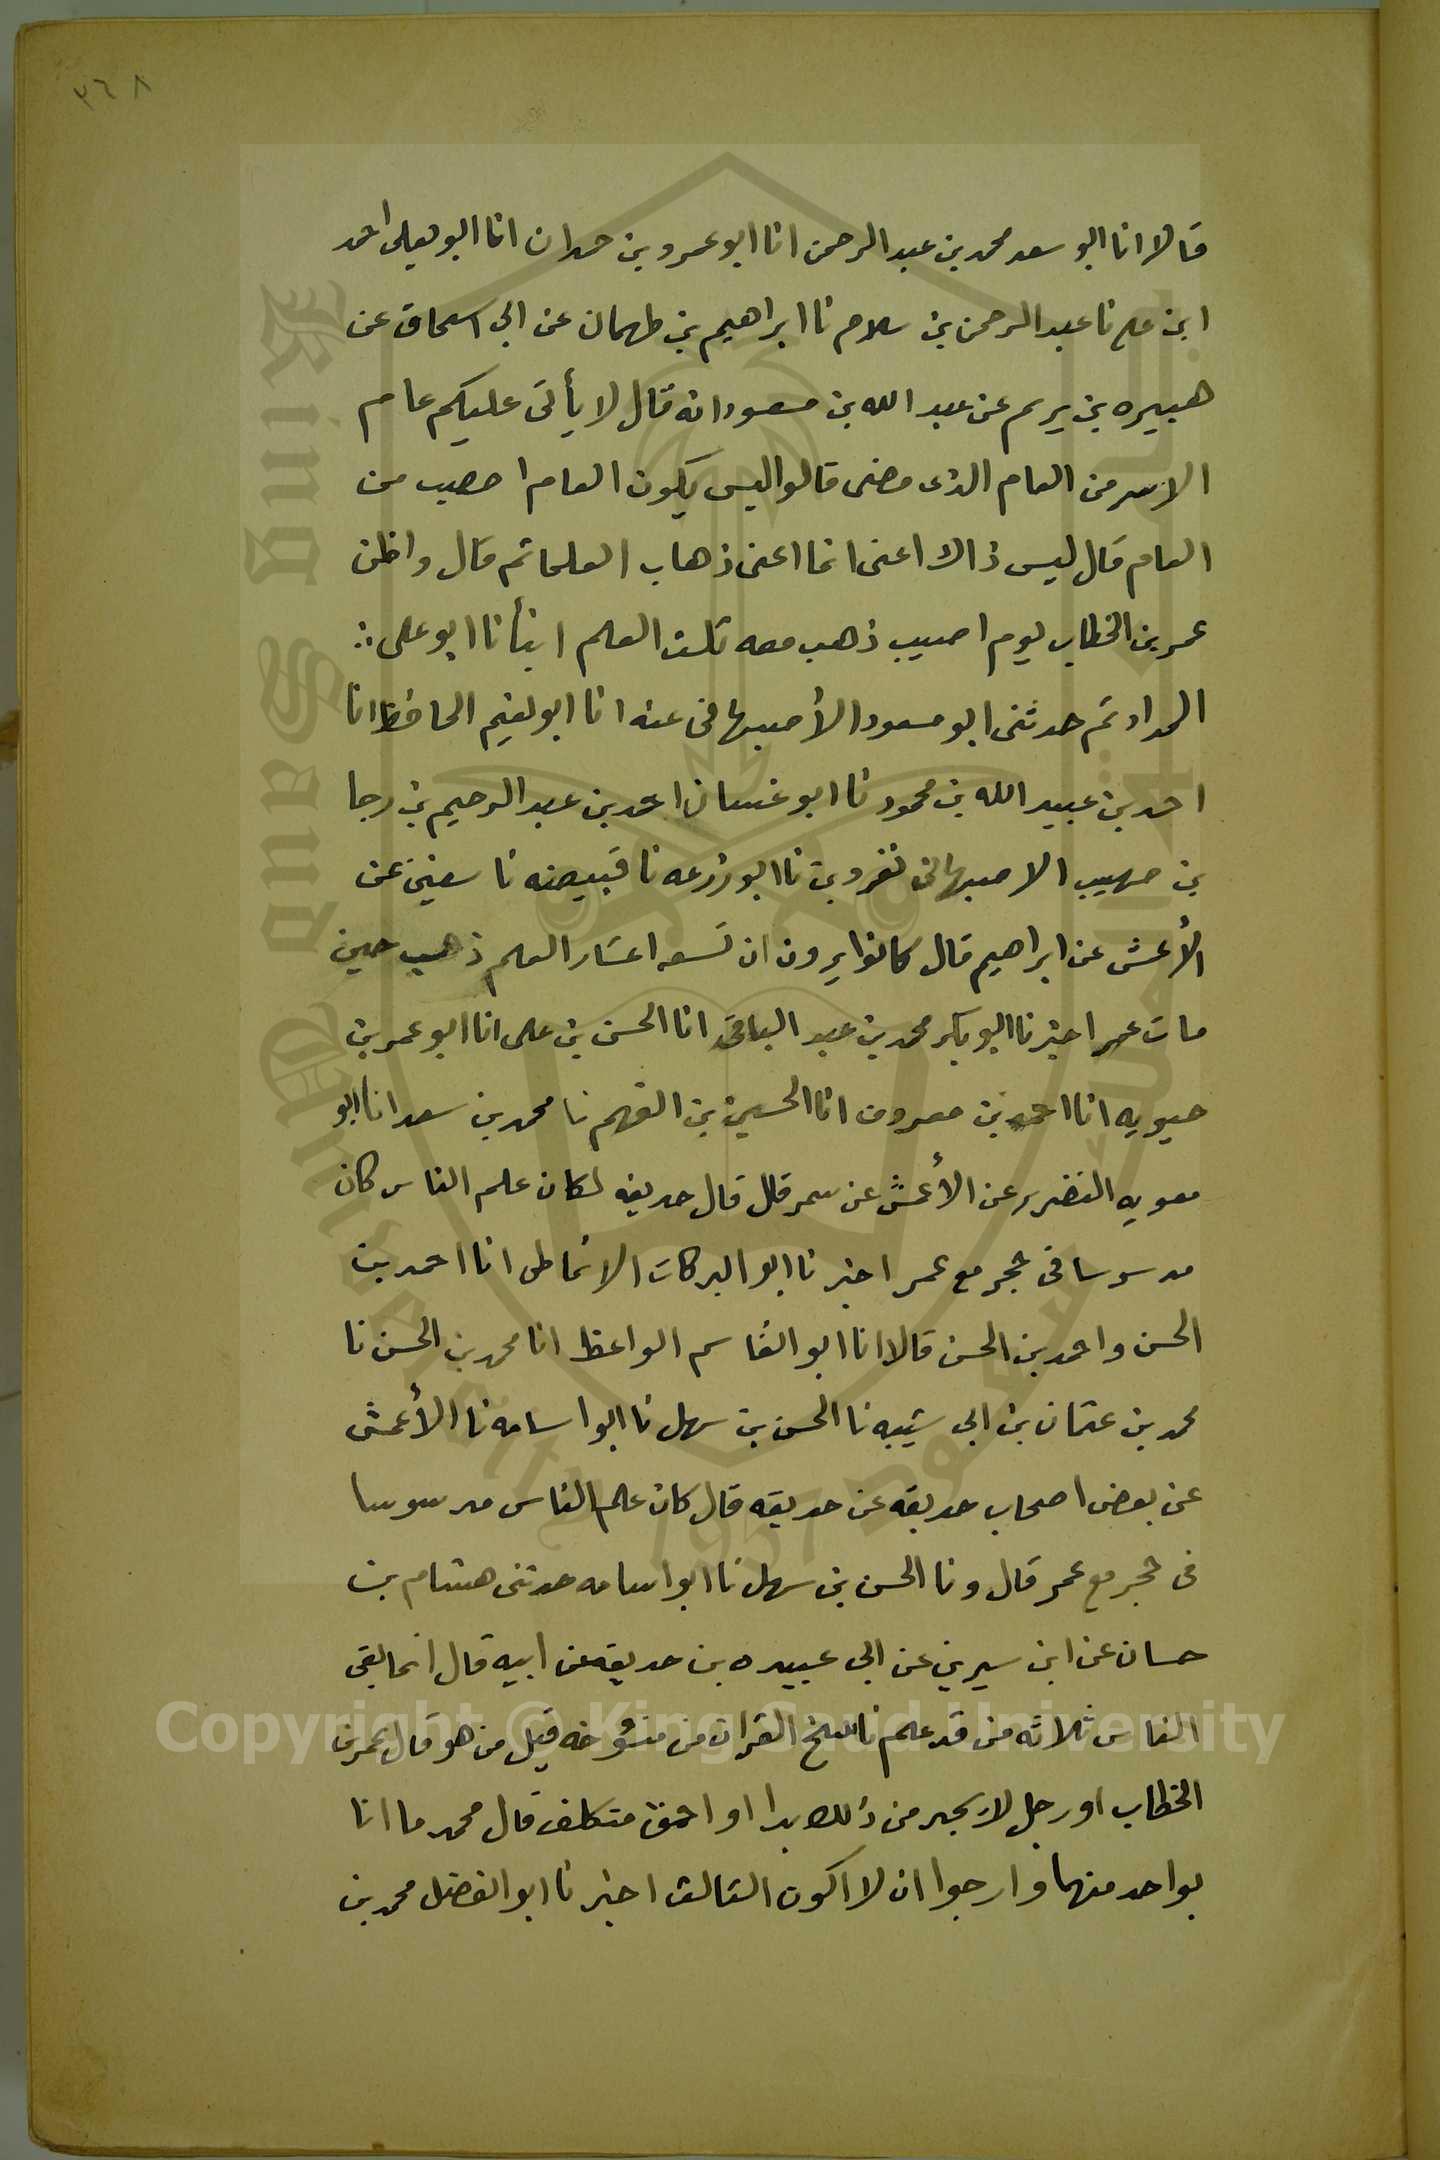 ٣٦٨
قالا انا ابو سعد محمد بن عبد الرحمن انا ابو عمرو بن حمدان انا ابو يعلى احمد
ابن علي نا عبد الرحمن بن سلام نا ابراهيم بن طهمان عن ابي اسحاق عن
هبيره بن يريم عن عبد الله بن مسعود انه قال لا يأتى عليكم عام
الا شر من العام الذى مضى قالوا اليس يكون العام اخصب من
العام قال ليس ذاك اعنى انما اعنى ذهاب العلما ثم قال واظن
عمر بن الخطاب يوم اصيب ذهب معه ثلث العلم انبأنا ابو على
الحداد ثم حدثنى ابو مسعود الأصبهانى عنه انا ابو نعيم الحافظ انا
احمد بن عبيد الله بن محمود نا ابو غسان احمد بن عبد الرحيم بن رجا
بن صهيب الاصبهانى نفروين نا ابو زرعه نا قبيصه نا سفين عن
الأعمش عن ابراهيم قال كانوا يرون ان تسعه اعشار العلم ذهب حين
مات عمر اخبرنا ابو بكر محمد بن عبد الباقى انا الحسن بن على انا ابو عمر بن
حيويه انا احمد بن معروف انا الحسين بن الفهم نا محمد بن سعد انا ابو
معويه الضرير عن الأعمش عن سمر قال قال حديفه لكان علم الناس كان
مدسوسا فى جحر مع عمر اخبرنا ابو البركات الانماطى انا احمد بن
الحسن واحمد بن الحسن قالا انا ابو القاسم الواعظ انا محمد بن الحسن نا
محمد بن عثمان بن ابى شيبه نا الحسن بن سهل نا ابو اسامه نا الأعمش
عن بعض اصحاب حديقه عن حديقه قال كان علم الناس مدسوسا
فى جحر مع عمر قال ونا الحسن بن سهل نا ابو اسامه حدثنى هشام بن
حسان عن ابن سيرين عن ابى عبيده بن حديقه عن ابيه قال انما بقى
الناس ثلاثه من قد علم ناسخ القران من منسوخه قيل من هو قال عمر بن
الخطاب او رجل لا يجد من ذلك بدا او احمق متكلف قال محمد ما انا
بواحد منهما وارجوا ان لا اكون الثالث اخبرنا ابو الفضل محمد بن
Copyright © King Saud University